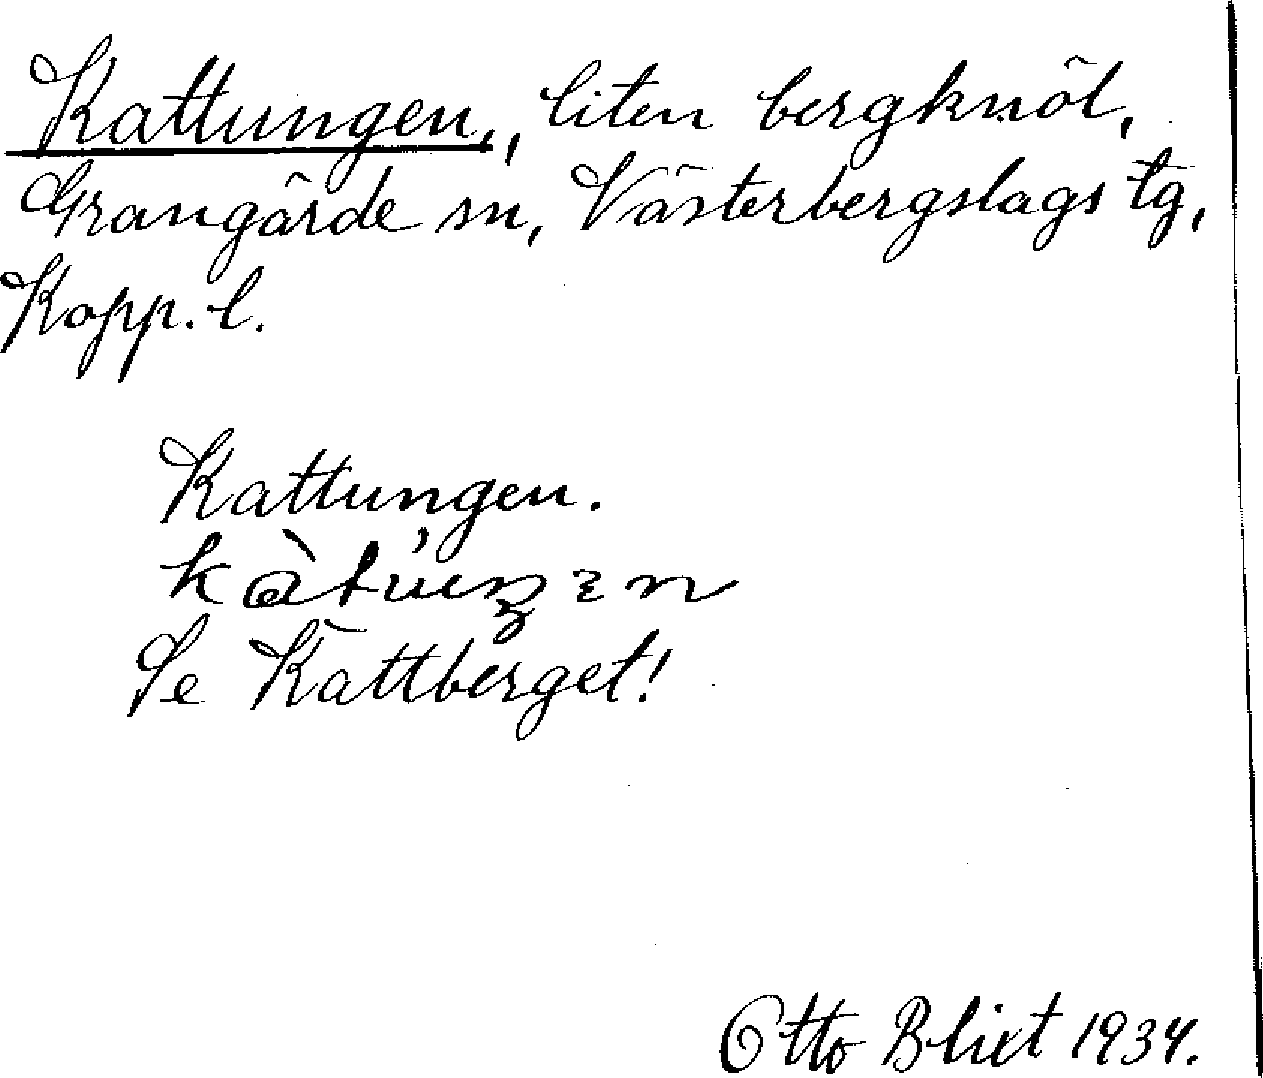 Kattungen, liten bergknöl,
Grangärde sn, Västerbergslags tg,
Kopp. l.
Kattungen.
Se Kattberget!
Otto Blixt 1934.